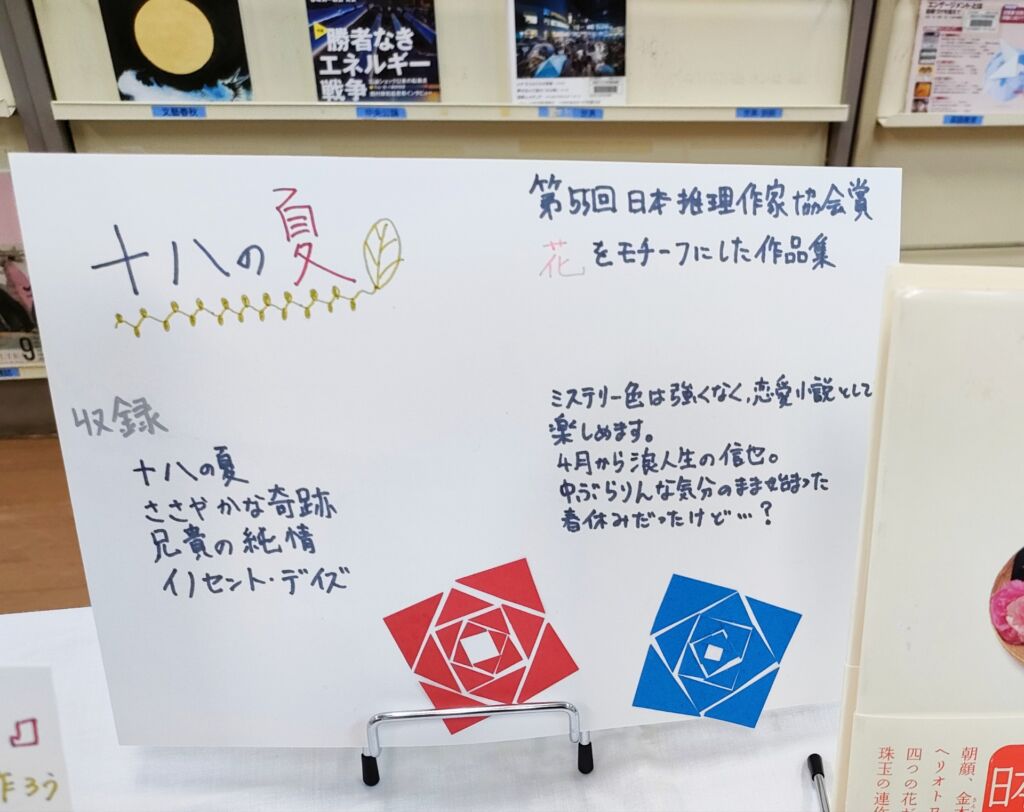 勝者なき
エネルギー
戦争
文藝春秋
中央公論
世界
エンゲージメントとは
十八の夏
第55回日本推理作家協会賞
花をモチーフにした作品集
収録
十八の夏
ささやかな奇跡
兄貴の純情
イノセント・デイズ
ミステリー色は強くなく、恋愛小説として
楽しめます。
4月から浪人生の信也。
中ぶらりんな気分のまま始まった
春休みだったけど…?
9
作ろう
朝顔、金
ヘリオト
四つの花
珠玉の連作
日本